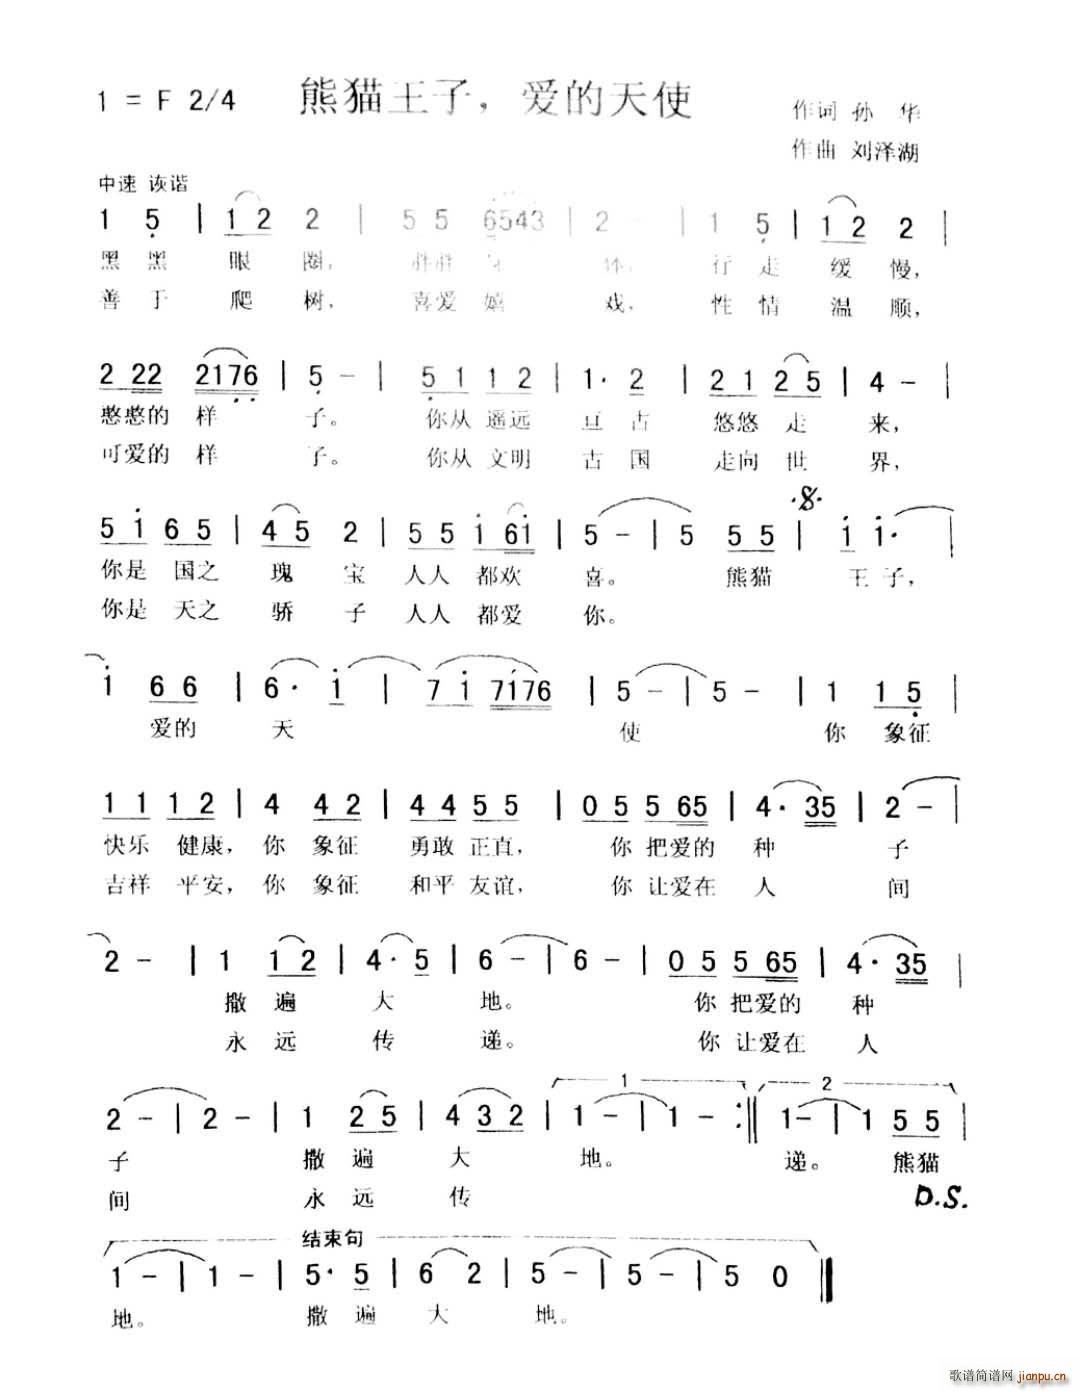 1 = F 2/4 熊猫王子，爱的天使 作词 孙 华
作曲 刘泽湖
中速 诙谐
1 5 | 1 2 2 | 5 5 6543 | 2 - | 1 5 | 1 2 2 |
黑 黑 眼 圈， 胖胖 身 体， 行 走 缓 慢，
善 于 爬 树， 喜爱 嬉 戏， 性 情 温 顺，
2 22 2176 | 5 - | 5 1 1 2 | 1· 2 | 2 1 2 5 | 4 - |
憨憨的 样 子。 你从 遥远 亘 古 悠悠 走 来，
可爱的 样 子。 你从 文明 古 国 走向 世 界，
5 1 6 5 | 4 5 2 | 5 5 1 61 | 5 - | 5 5 5 | 1 1· |
你是 国之 瑰 宝 人人 都欢 喜。 熊猫 王 子，
你是 天之 骄 子 人人 都爱 你。
1 6 6 | 6· 1 | 7 1 7176 | 5 - | 5 - | 1 1 5 |
爱的 天 使 你 象征
1 1 1 2 | 4 4 2 | 4 4 5 5 | 0 5 5 65 | 4· 35 | 2 - |
快乐 健康， 你 象征 勇敢 正直， 你 把爱的 种 子
吉祥 平安， 你 象征 和平 友谊， 你 让爱在 人 间
2 - | 1 1 2 | 4· 5 | 6 - | 6 - | 0 5 5 65 | 4· 35 |
撒 遍 大 地。 你 把爱的 种
永 远 传 递。 你 让爱在 人
1 2
2 - | 2 - | 1 2 5 | 4 3 2 | 1 - | 1 - :|| 1 - | 1 5 5 |
子 撒 遍 大 地。 递。 熊猫
间 永 远 传 D.S.
结束句
1 - | 1 - | 5· 5 | 6 2 | 5 - | 5 - | 5 0 ||
地。 撒 遍 大 地。
歌谱简谱网 jianpu.cn